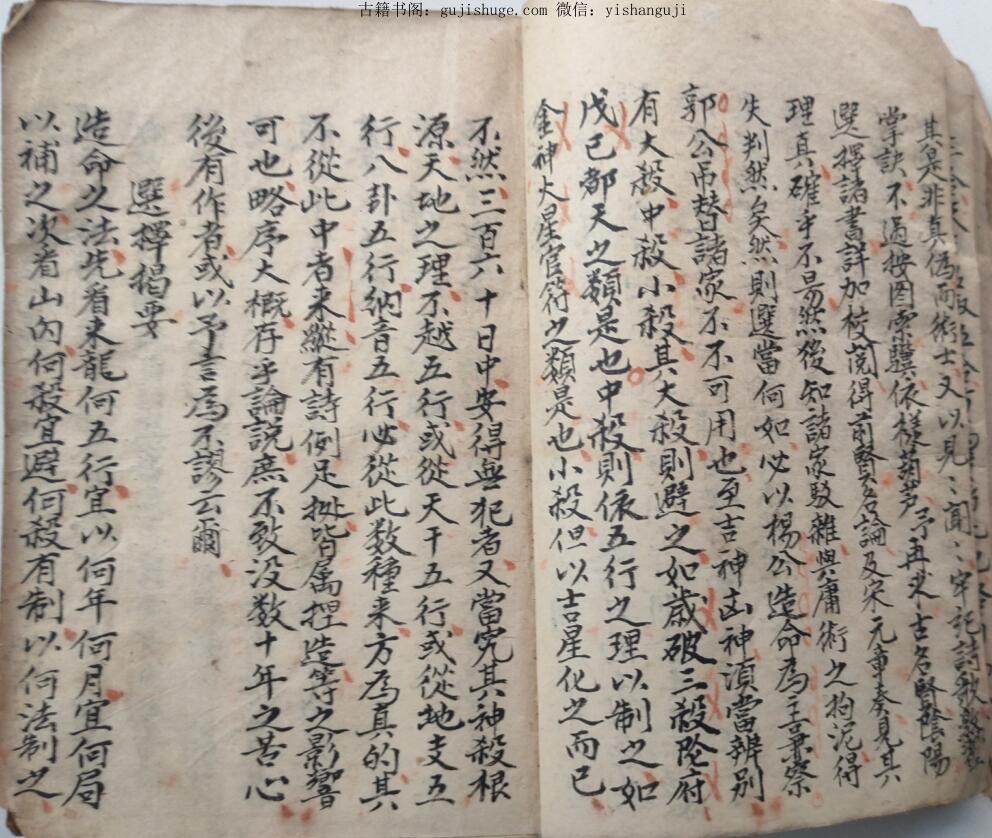 古籍书阁：gujishuge.com 微信：yishanguji
其是非真偽而術士又以見〻聞〻牢記詩歌
掌訣不過按图索驥依樣葫芦予再求古名賢陰陽
選擇諸書詳加校閱得前賢名論及宋元車奏見其
理真確乎不易然後知諸家駁雜與庸術之拘泥得
失判然矣然則選當何如必以楊公造命為主兼察
郭公吊替諸家不不可用也至吉神凶神湏當辨别
有大殺中殺小殺其大殺則避之如歲破三殺陰府
戊己都天之類是也中殺則依五行之理以制之如
金神大星官符之類是也小殺但以吉星化之而已
不然三百六十日中安得無犯者又當究其神殺根
源天地之理不越五行或從天干五行或從地支五
行八卦五行納音五行必從此数種来方為真的其
不從此中者来縱有詩例足㨿皆属捏造等之影響
可也略序大概存乎論説庶不致没数十年之苦心
後有作者或以予言為不謬云爾
選擇揭要
造命之法先看来龍何五行宜以何年何月宜何局
以補之次看山内何殺宜避何殺有制以何法制之